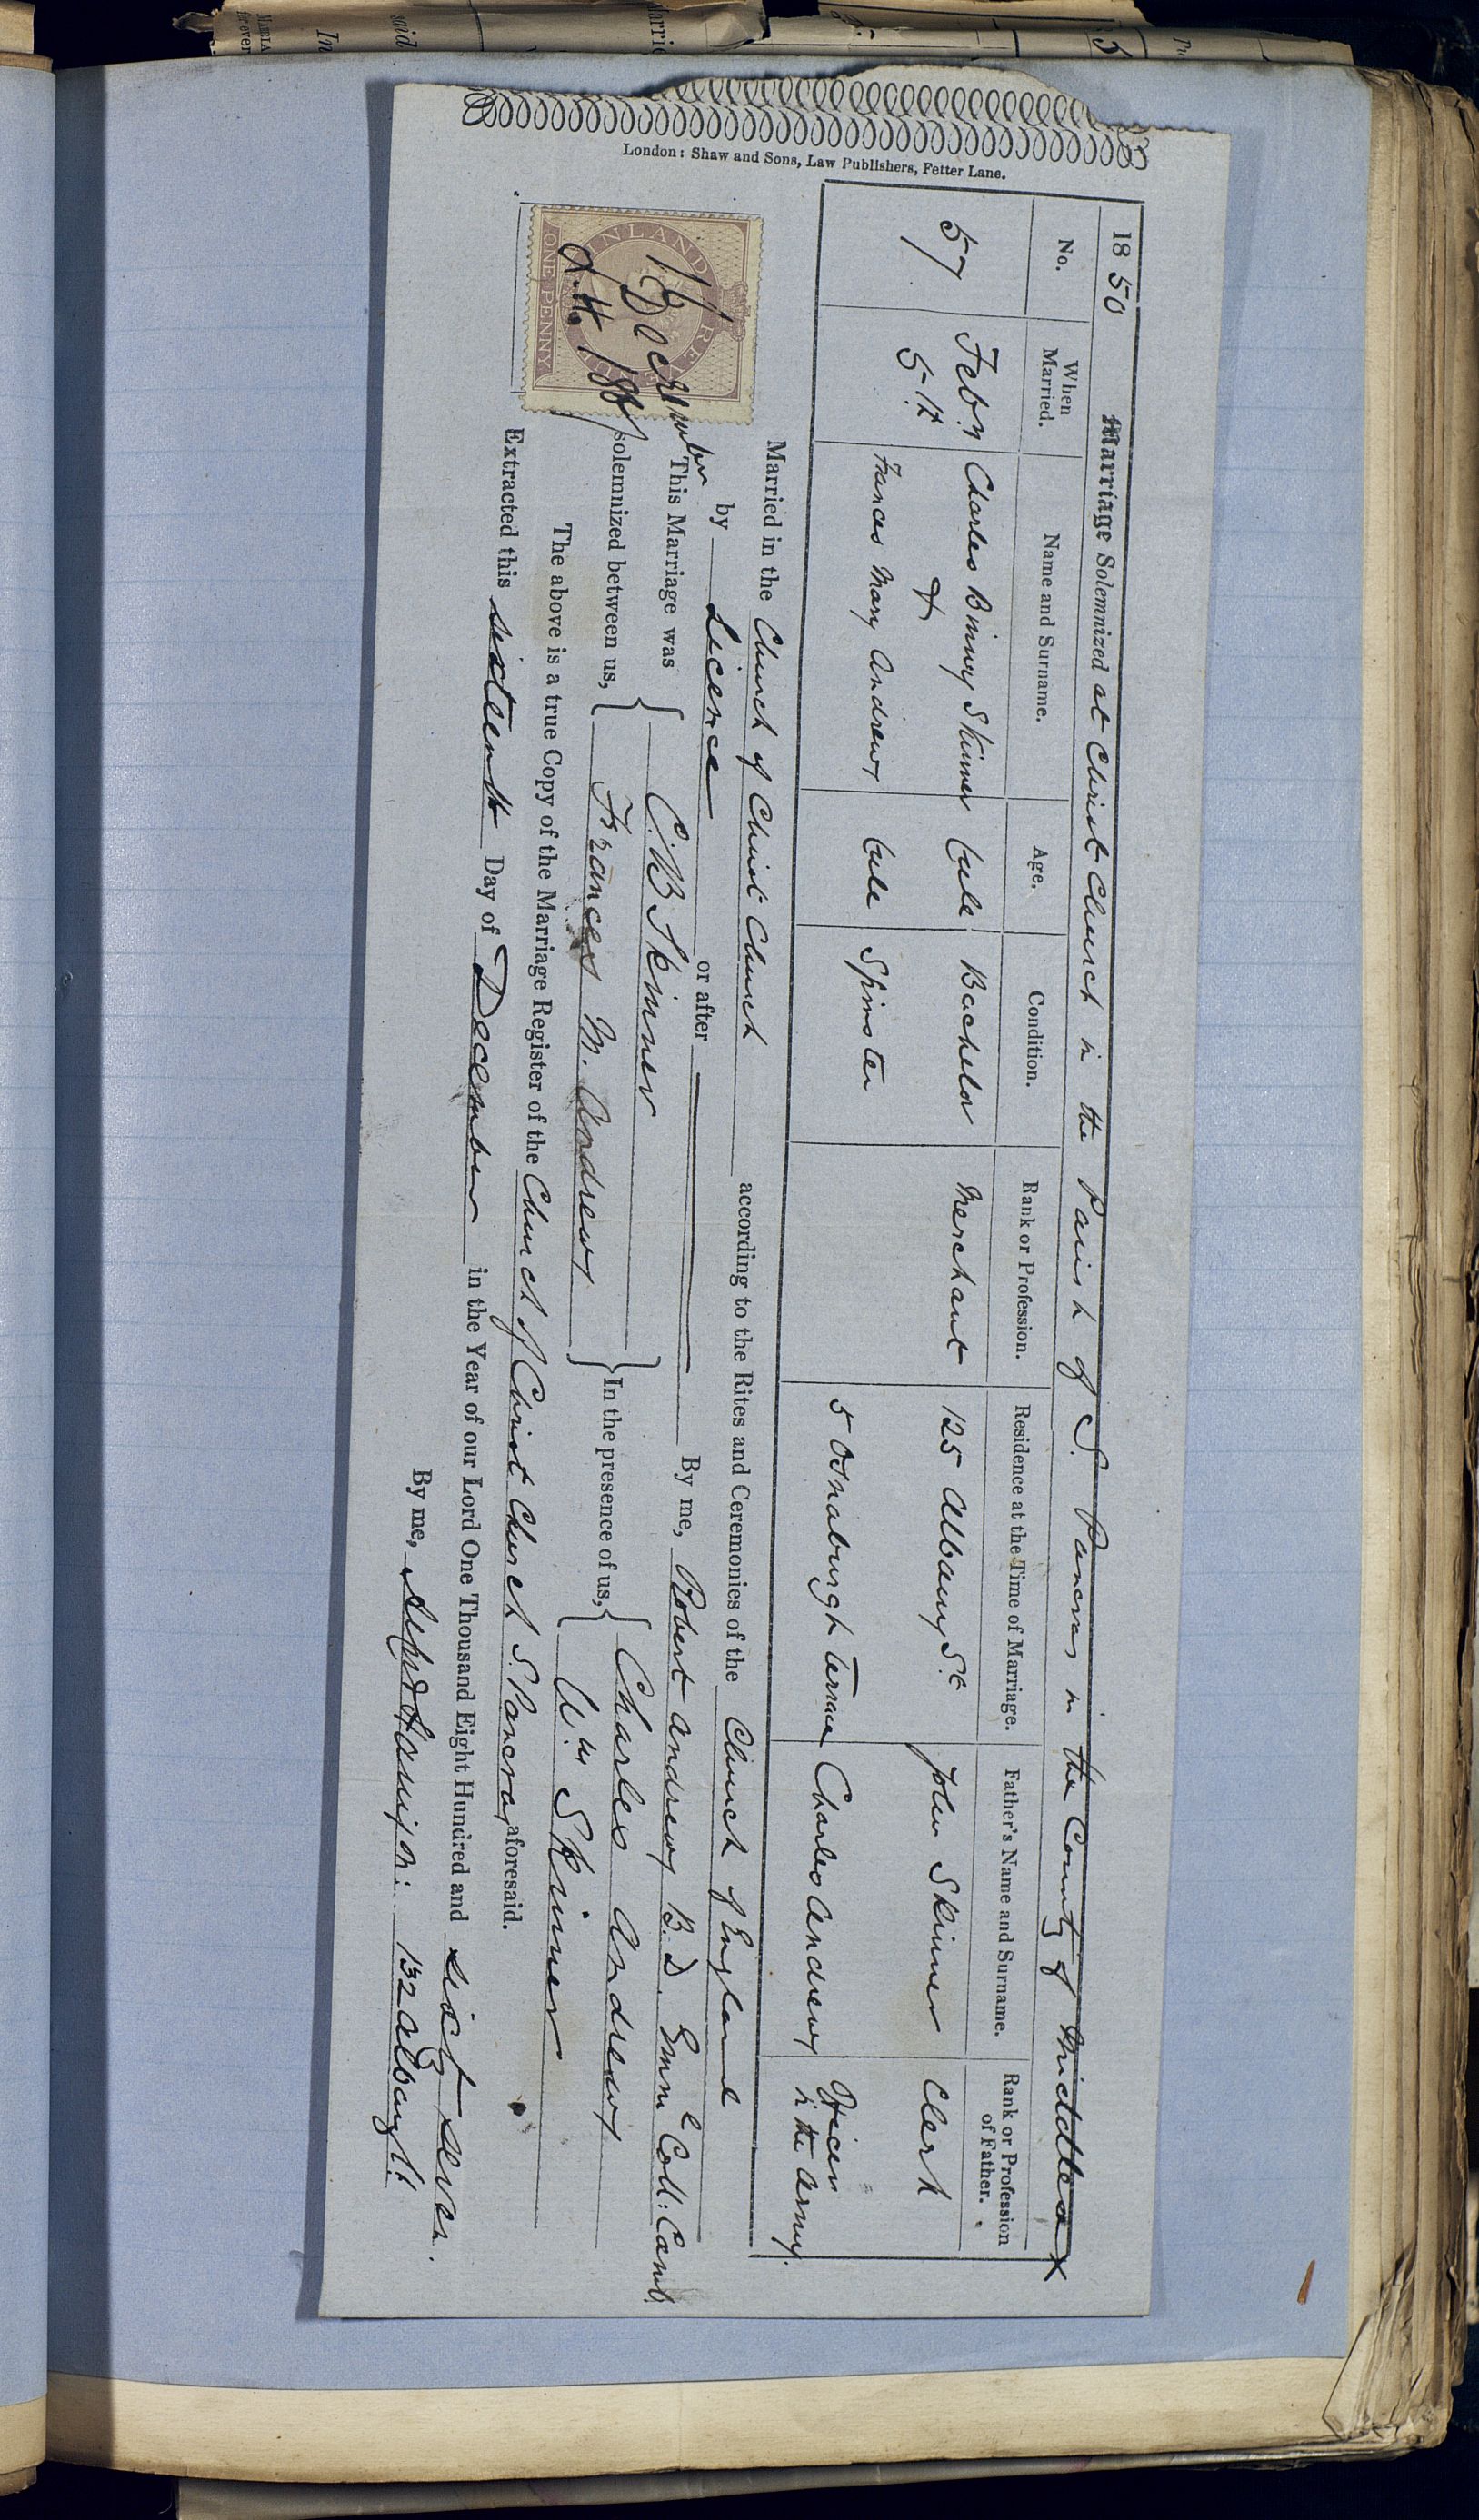 London: Shaw and Sons, Law Publishers, Fetter Lane.
1850 Marriage Solemnized at Christ Church in the Parish of S. Pancras in the County of Middlesex
No. When Married. Name and Surname. Age. Condition. Rank or Profession. Residence at the Time of Marriage. Father's Name and Surname. Rank or Profession of Father.
57 Feby Charles Binney Skinner full Bachelor Merchant 125 Albany St John Skinner Clerk
5th &
Frances Mary Andrews full Spinster 5 Osnaburgh Terrace Charles Andrews Officer in the Army.
Married in the Church of Christ Church according to the Rites and Ceremonies of the Church of England
by Licence or after By me, Robert Andrews B.D. Emml Coll: Camb.
This Marriage was solemnized between us, C. B. Skinner In the presence of us, Charles Andrews
Frances M. Andrews Wm Skinner
The above is a true Copy of the Marriage Register of the Church of Christ Church S. Pancras aforesaid.
Extracted this sixteenth Day of December in the Year of our Lord One Thousand Eight Hundred and sixty seven.
By me, 132 Albany St
INLAND REVENUE
ONE PENNY
December
In
said